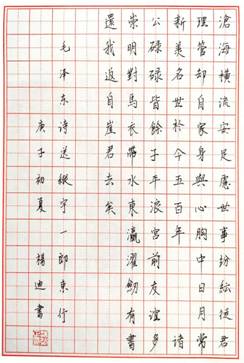 滄海橫流安足慮世事紛紜從君
理管却自家身與心胸中日月常
新美名世於今五百年諸
公碌碌皆餘子平浪宮前友誼多
崇明對馬衣帶水東瀛濯劍有書
還我返自崖君去矣
毛澤東詩送縱宇一郎東行
庚子初夏楊迪書